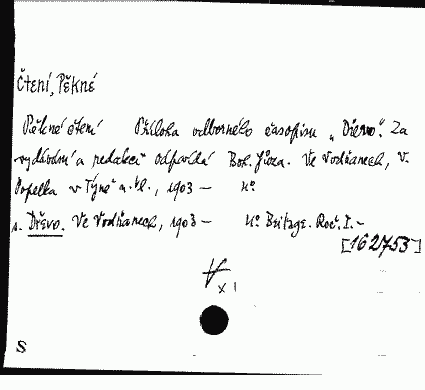 Čtení, Pěkné
Pěkné čtení Příloha odborného časopisu „Dřevo". Za
vydávání a redakci odpovídá Boh. Józa. Ve Vodňanech, V.
Popelka v Týně n. Vl., 1903 — 4°
s. Dřevo. Ve Vodňanech, 1903 — 4° Beilage. Roč. I. —
[162753]
XI
S